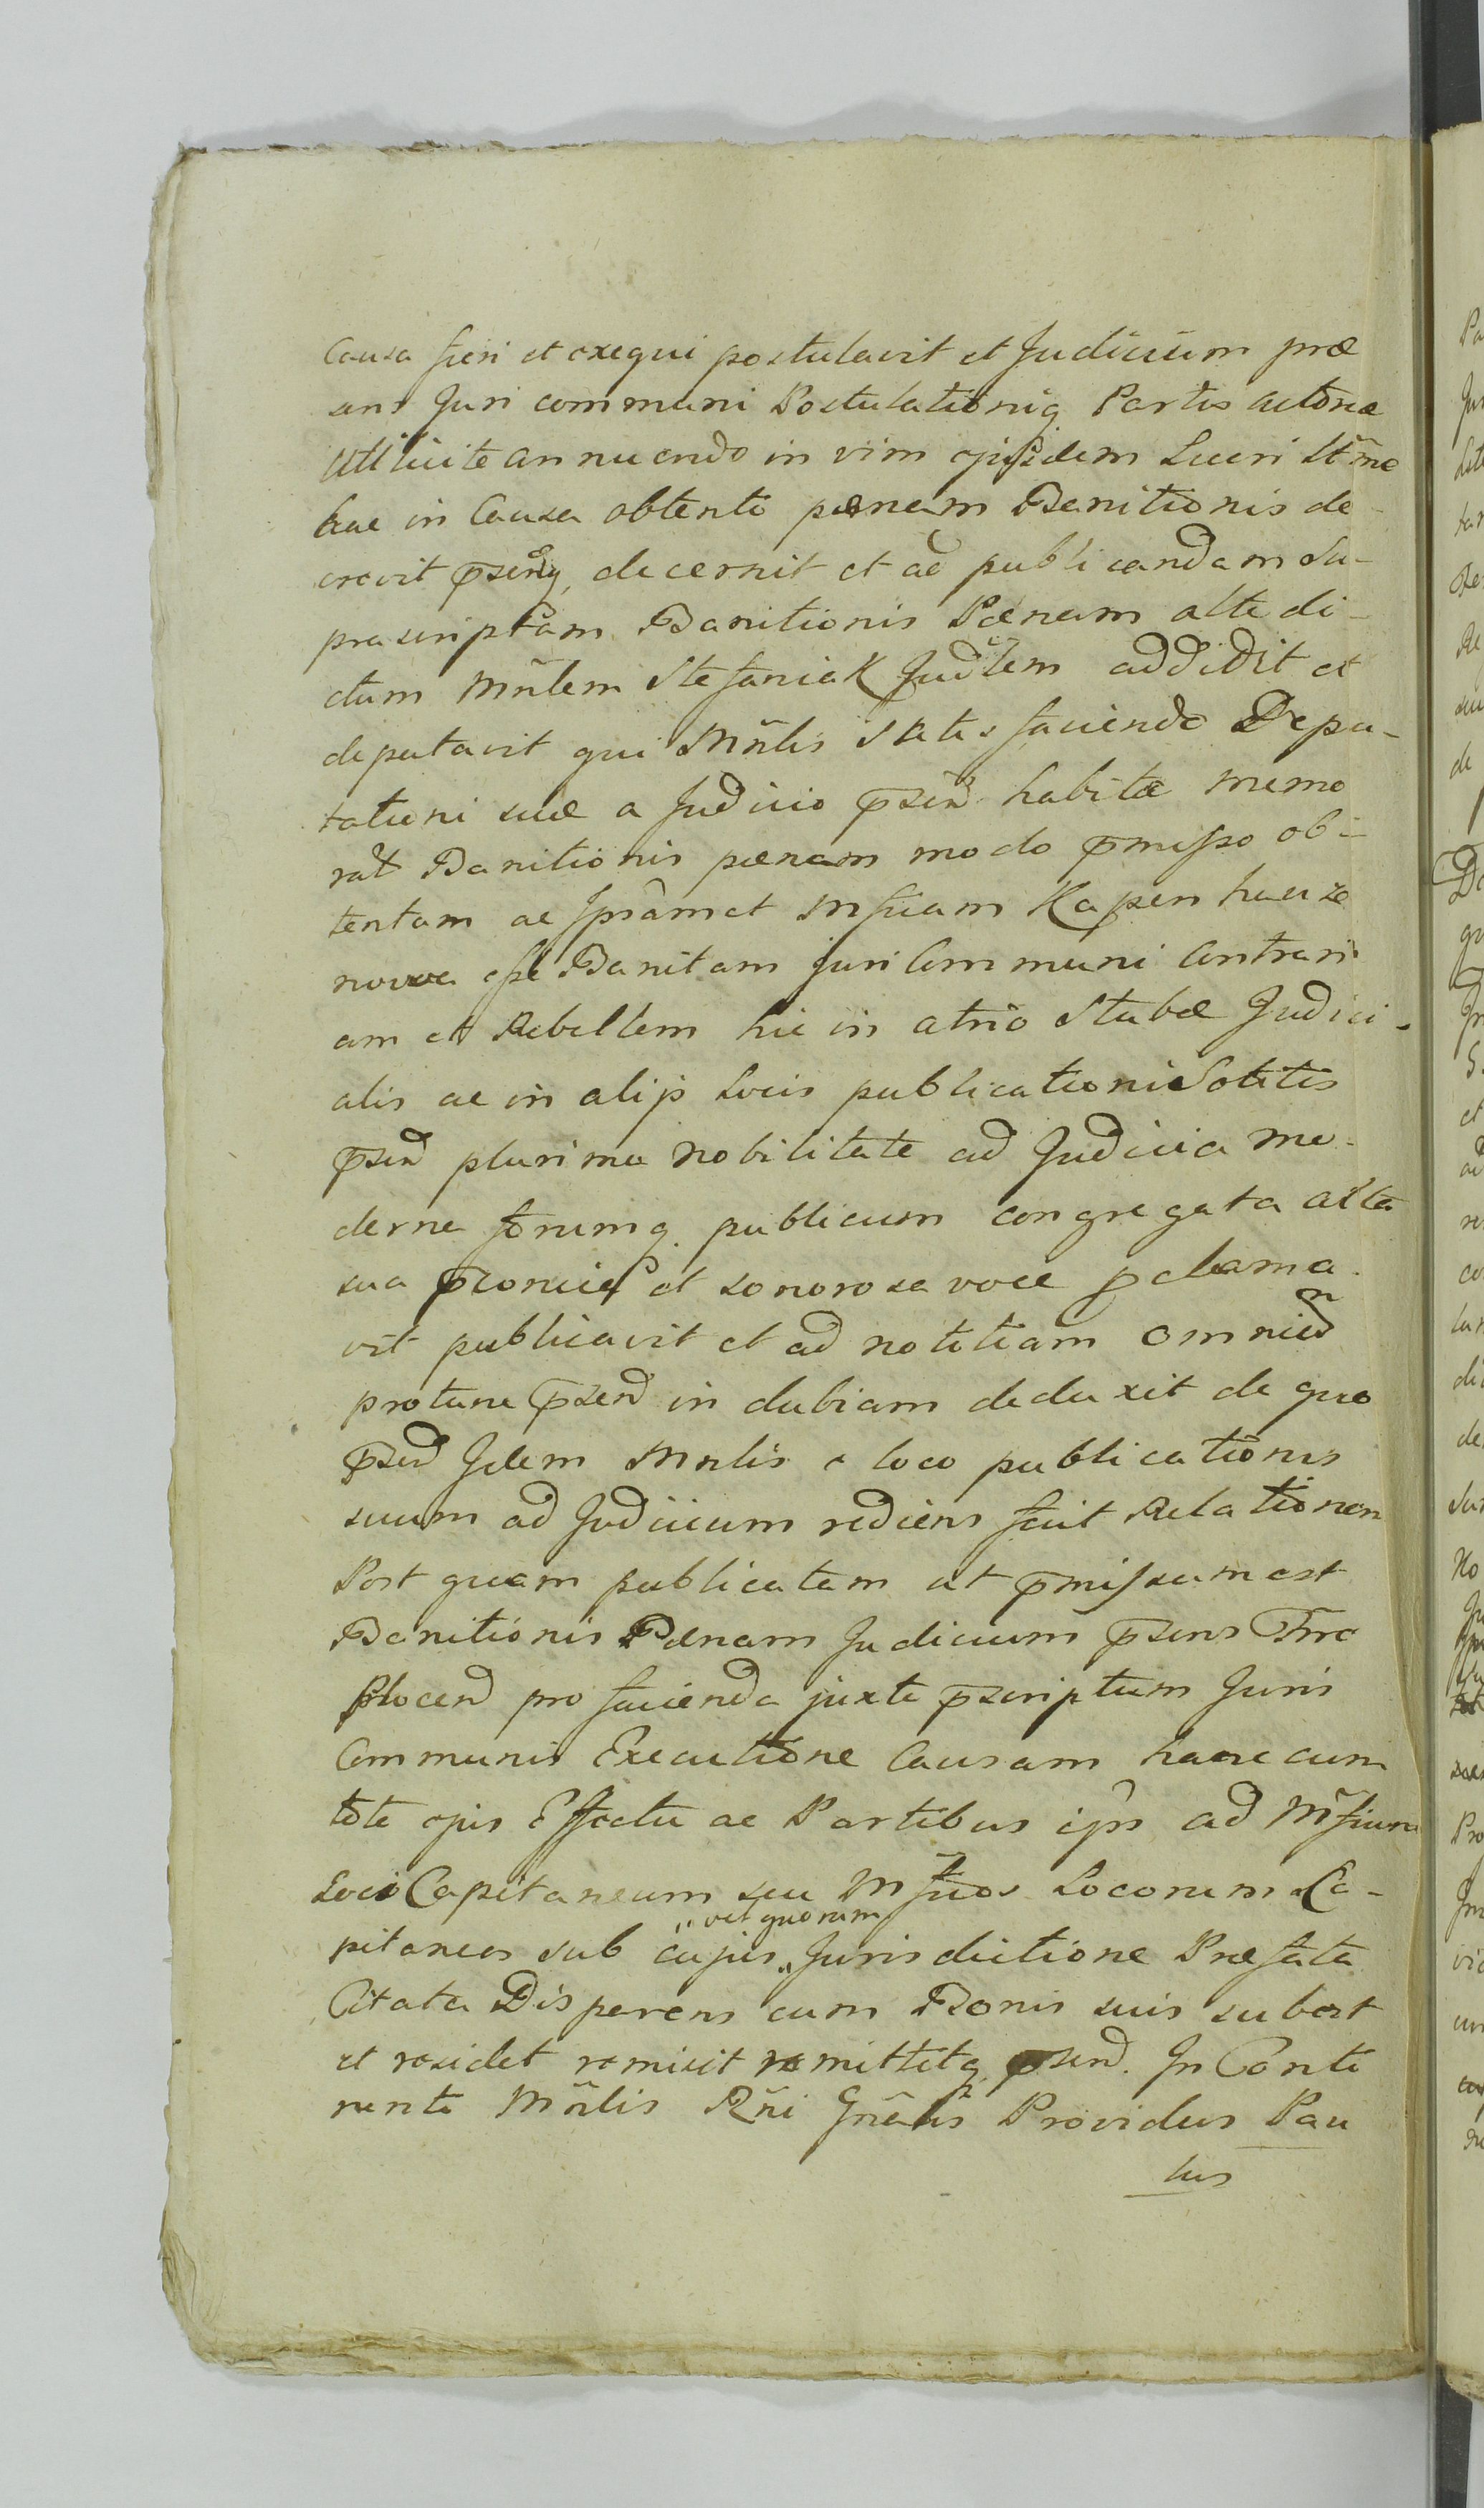 Causa fieri et exequi postulavit et Judicium præ
sens Juri communi Postulationiq Partis actoreæ
utt licite annuendo in vim ejusdem Lucri Ult͂me
hac in Causa obtenti pænam Banitionis de-
crevit p̄sentq, decernit et ad publicandam Su-
prascriptam Banitionis Pænam alte di-
ctum Mñlem Stefaniak Judlem addidit et
deputavit qui Mñlis satisfaciendo Depu-
tationi suæ a Judicio p̄send habitæ memo
rat Banitionis pænam modo p̄misso ob-
tentam ac Ipsâmet Mficam Kapenhauze
nowa esse Banitam juri Communi Contrari
am et Rebellem hic in atrio Stubæ Judici-
alis ac in alijs Locis publicationi Solitis
p̄send plurima Nobilitate ad Judicia mo-
derna forumq publicum congregata alta
sua et sonorosa voce pclama
vit publicavit et ad notitiam omnium
protunc p̄send in dubiam deduxit de quo
p̄send Idem Mnlis a loco publicationis
suum ad Judicium rediens fecit Relationem
Post quam publicatam ut p̄missum est
Banitionis Pænam Judicium p̄sens Trre
Plocen pro facienda juxta p̄scriptum Juris
Communis Executione Causam hanc cum
toto ejus Effectu ac Partibus ijs ad Mficum
Loci Capitaneum seu Mficos Locorum Ca-
vel quorum
pitaneos sub cujus Jurisdictione Præfata
Citata Disparens cum Bonis suis subest
et residet remisit remittitq p̄send. In Conti
nenti Mñlis Rñi Gñalis Providus Pau
lus